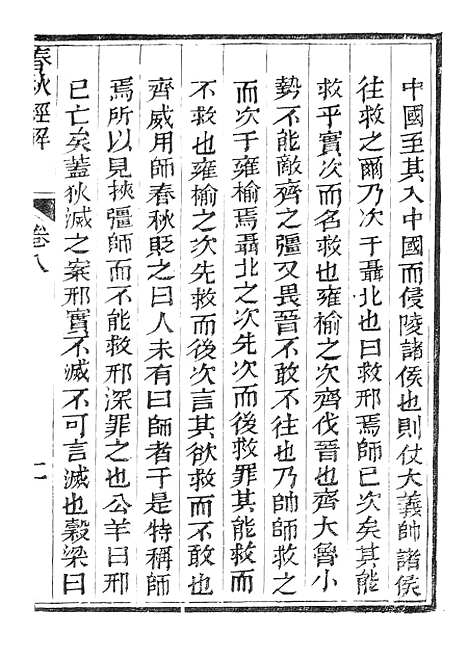 中國至其入中國而侵陵諸侯也則仗大義帥諸侯
往救之爾乃次于聶北也曰救邢焉師已次矣其能
救乎實次而名救也雍榆之次齊伐晉也齊大魯小
勢不能敵齊之彊又畏晉不敢不往也乃帥師救之
而次于雍榆焉聶北之次先次而後救罪其能救而
不救也雍榆之次先救而後次言其欲救而不敢也
齊威用師春秋貶之曰人未有曰師者于是特稱師
焉所以見挾彊師而不能救邢深罪之也公羊曰邢
已亡矣蓋狄滅之案邢實不滅不可言滅也穀梁曰
春秋經解
卷八
二